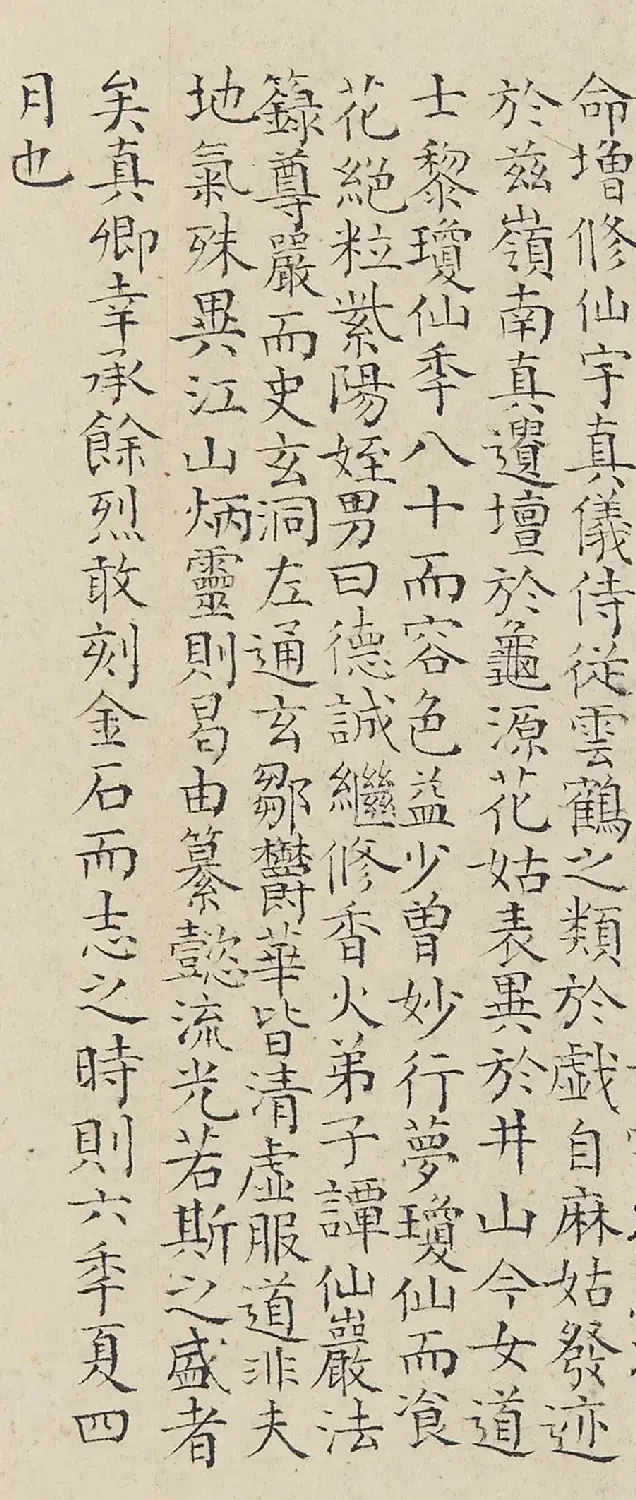 命增修仙宇真儀侍從雲鶴之類於戲自麻姑發迹
於茲嶺南真遺壇於龜源花姑表異於井山今女道
士黎瓊仙秊八十而容色益少曾妙行夢瓊仙而飡
花絕粒紫陽姪男曰德誠繼修香火弟子譚仙巖法
籙尊嚴而史玄洞左通玄鄒鬱華皆清虛服道非夫
地氣殊異江山炳靈則曷由纂懿流光若斯之盛者
矣真卿幸承餘烈敢刻金石而志之時則六秊夏四
月也